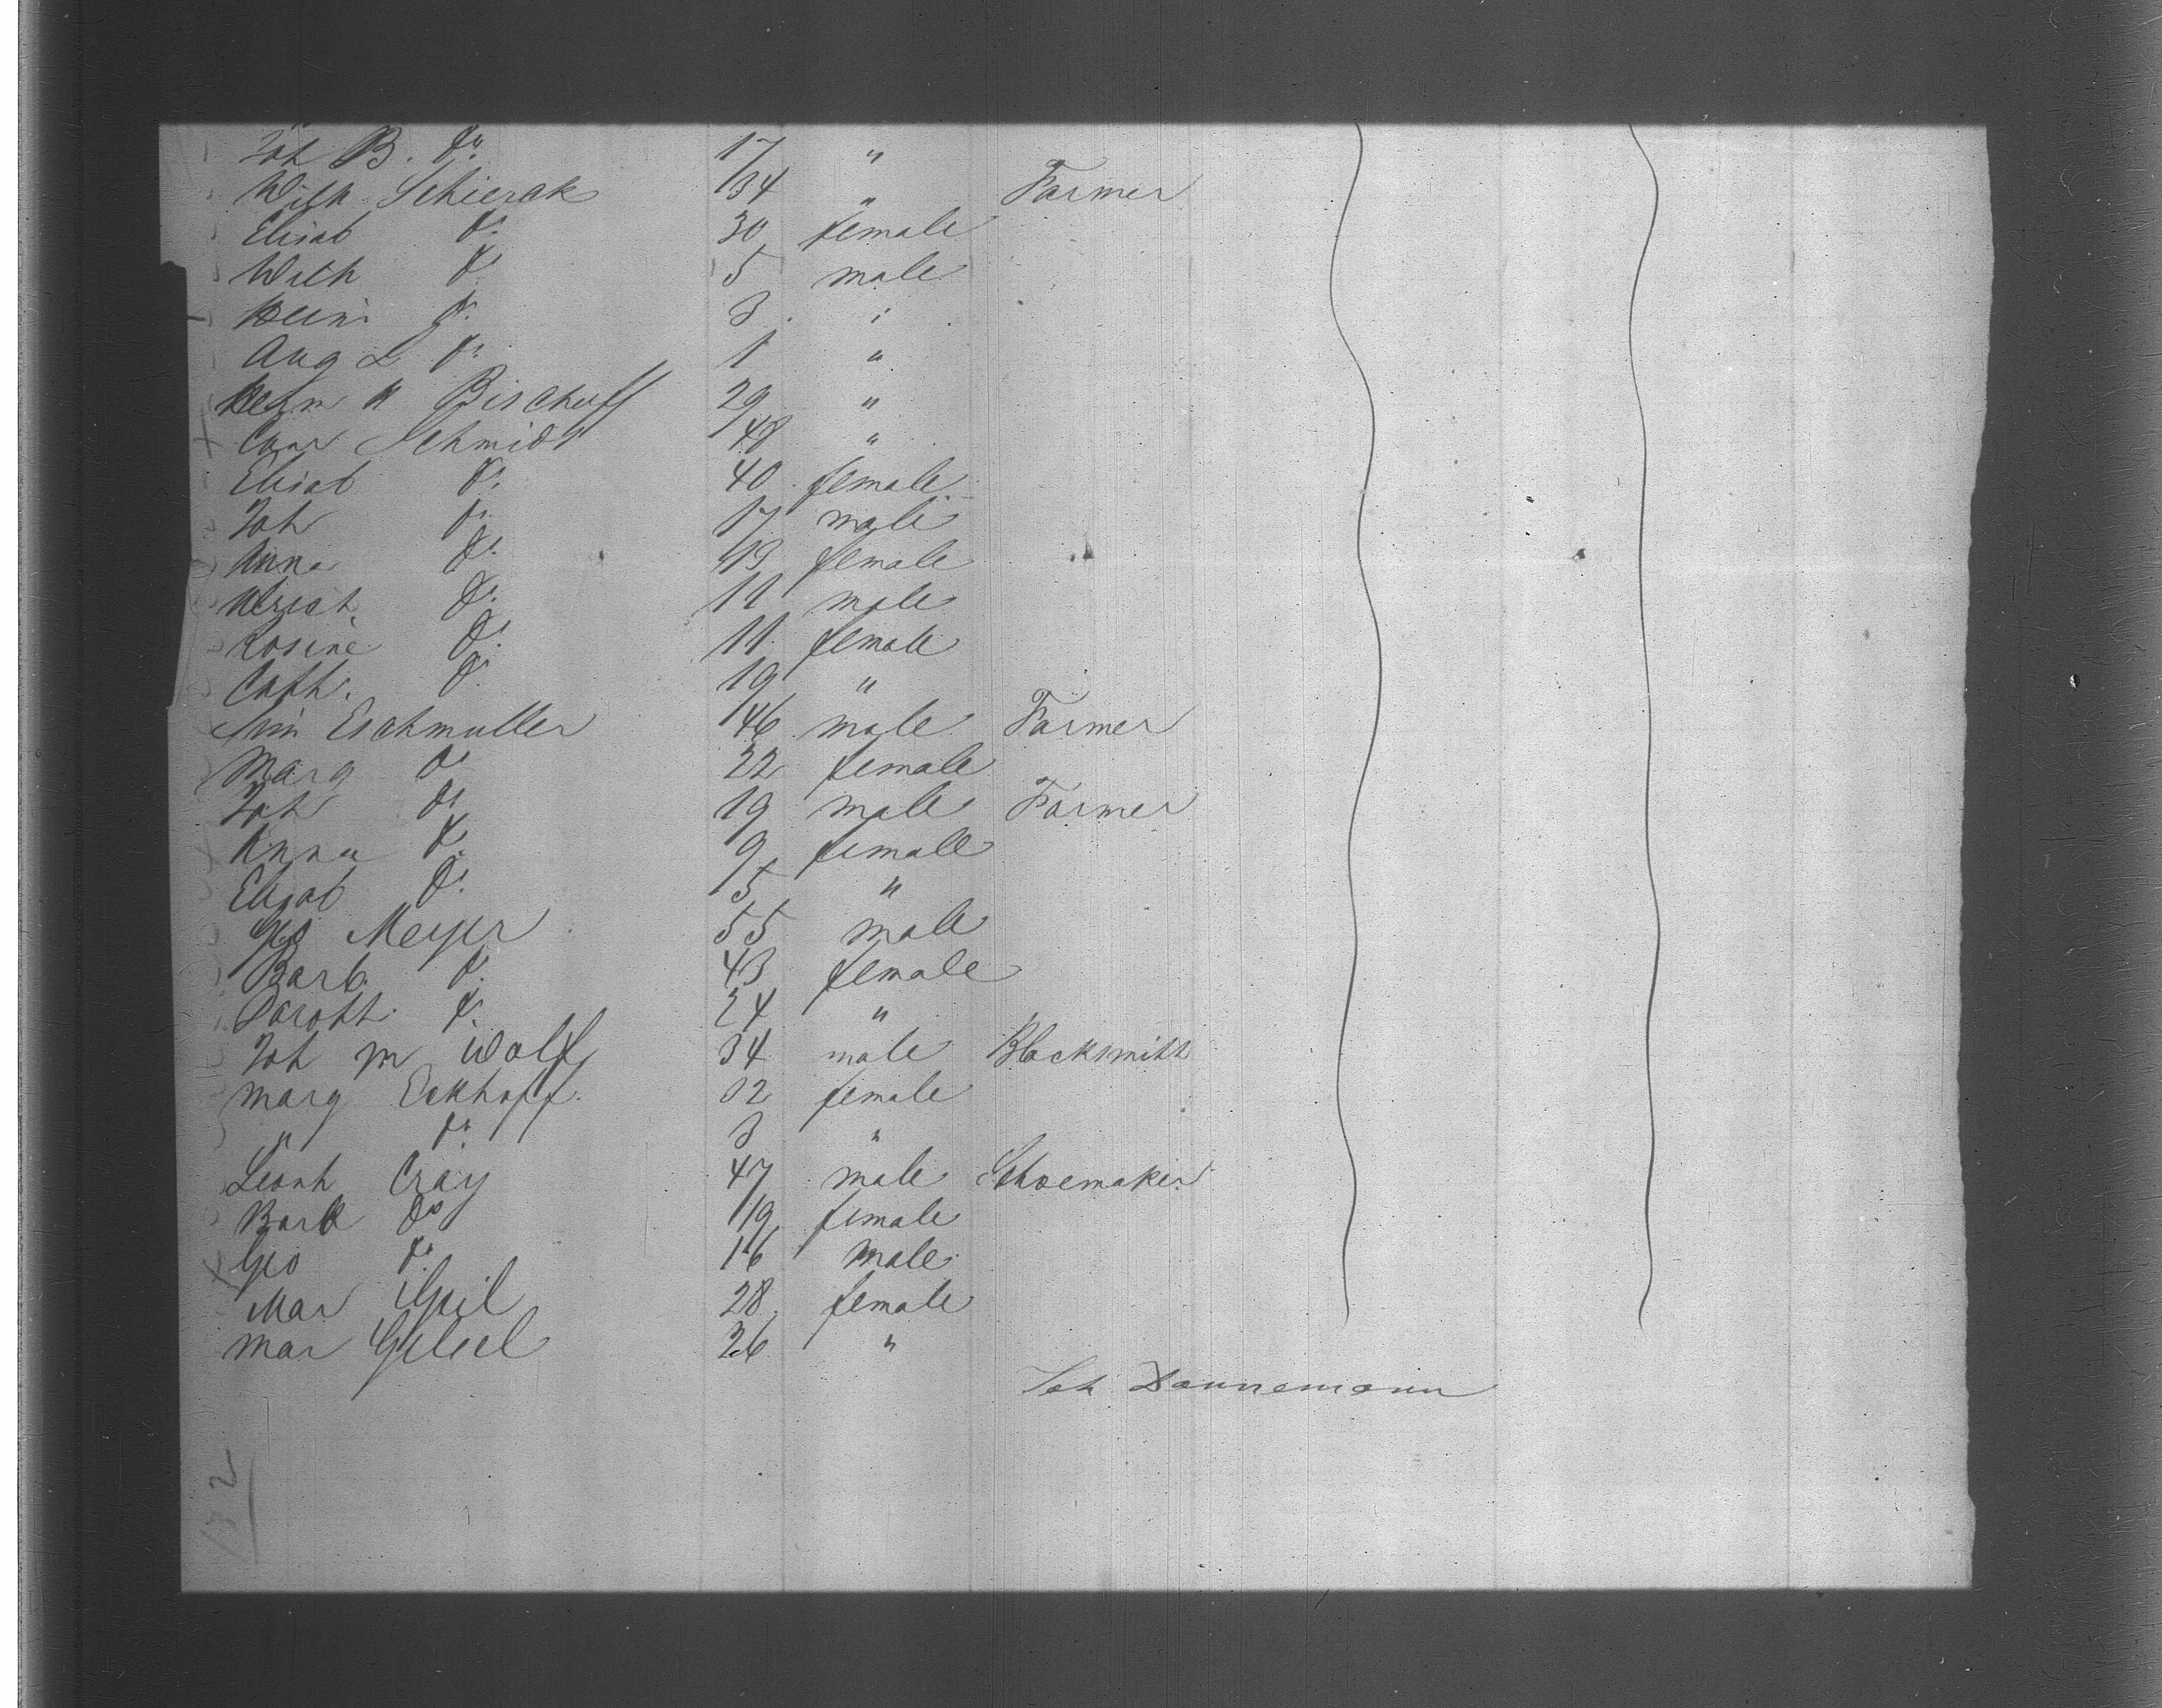 Joh B. do 17 "
Wilh Schierak 34 " Farmer
Elisab do 30 female
Wilh do 5 male
Heinr do 3 "
Aug L do 1 "
Herm H Bischoff 29 "
Conr Schmidt 48 "
Elisab do 40 female
Joh do 17 male
Anna do 13 female
Ulrich do 11 male
Rosine do 11 female
Cath. do 19 "
Eschmuller 46 male Farmer
Marg do 22 female
Joh do 19 male Farmer
Anna do 9 female
Elisab do 5 "
Geo Meyer 55 male
Barb. do 43 female
Doroth. do 24 "
Joh M Wolf 34 male Blacksmith
Marg Eckhoff. 32 female
" do 3 "
Leonh Cray 47 male Schoemaker
Barb do 19 female
Geo do 16 male
Mar 28 female
Mar 26 "
Joh Dannemann
132